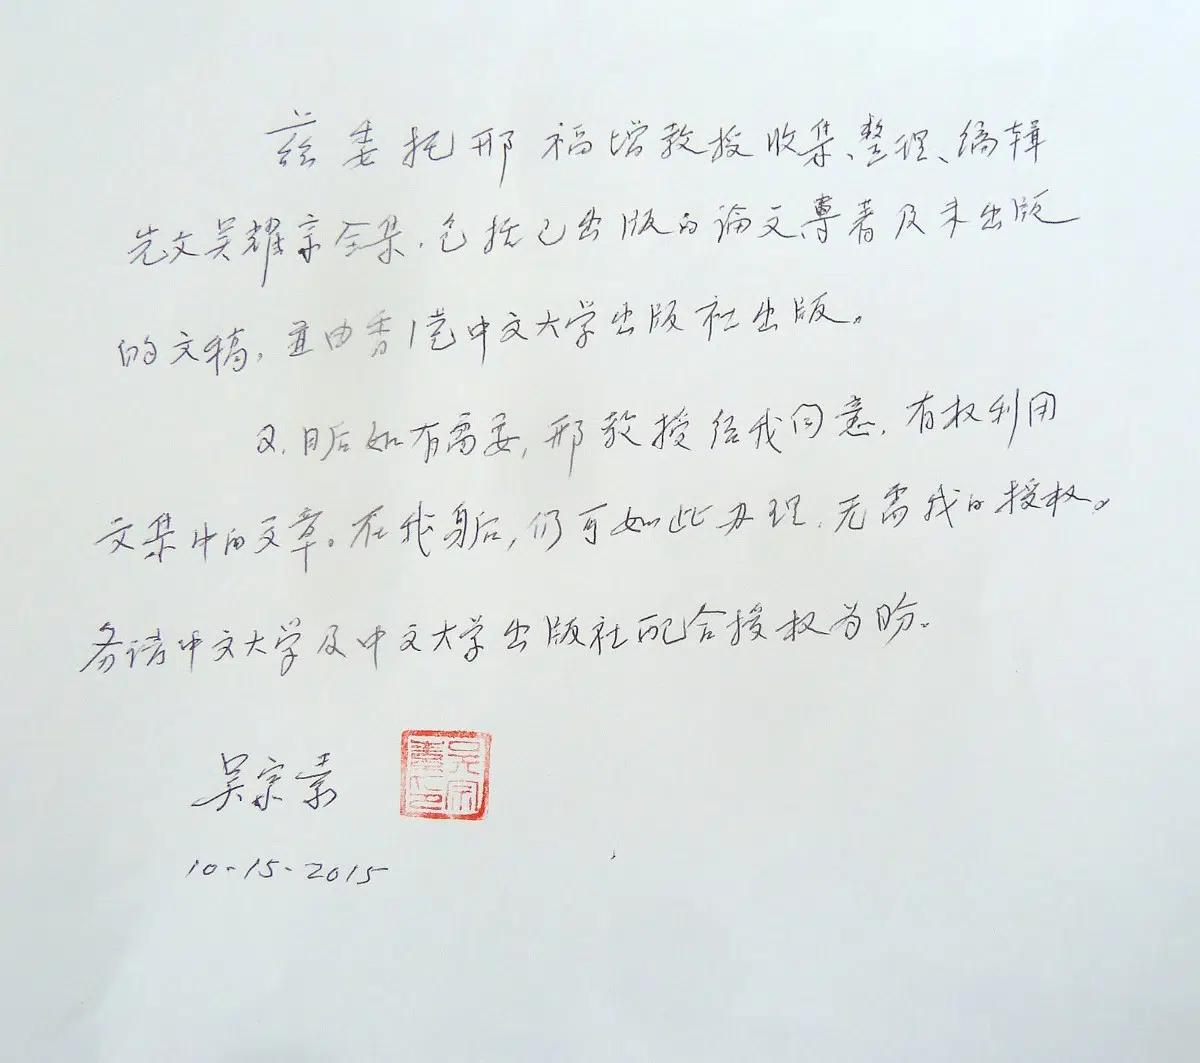 兹委托邢福增教授收集、整理、编辑
先父吴耀宗全集，包括已出版的论文專著及未出版
的文稿，並由香港中文大学出版社出版。
又，日后如有需要，邢教授经我同意，有权利用
文集中的文章。在我身后，仍可如此办理，无需我的授权。
务请中文大学及中文大学出版社配合授权为盼。
吴宗素
吴宗素印
10-15-2015